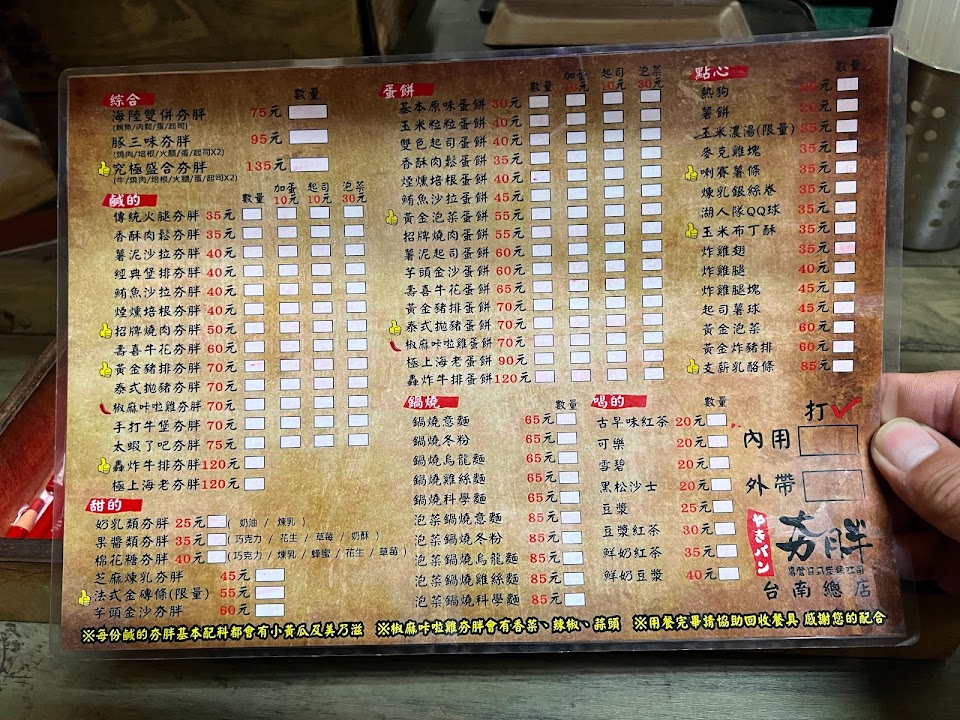 綜合 數量
海陸雙併夯胖 75元
(鮪魚/肉鬆/蛋/起司)
豚三味夯胖 95元
(燒肉/培根/火腿/蛋/起司X2)
究極盛合夯胖 135元
(牛/燒肉/培根/火腿/蛋/起司X2)
鹹的 數量 加蛋10元 起司10元 泡菜30元
傳統火腿夯胖 35元
香酥肉鬆夯胖 35元
薯泥沙拉夯胖 40元
經典堡排夯胖 40元
鮪魚沙拉夯胖 40元
煙燻培根夯胖 40元
招牌燒肉夯胖 50元
壽喜牛花夯胖 60元
黃金豬排夯胖 70元
泰式拋豬夯胖 70元
椒麻咔啦雞夯胖 70元
手打牛堡夯胖 70元
太蝦了吧夯胖 75元
轟炸牛排夯胖 120元
極上海老夯胖 120元
甜的
奶乳類夯胖 25元 ( 奶油 / 煉乳 )
果醬類夯胖 35元 (巧克力 / 花生 / 草莓 / 奶酥 )
棉花糖夯胖 40元 (巧克力 / 煉乳 / 蜂蜜 / 花生 / 草莓 )
芝麻煉乳夯胖 45元
法式金磚條(限量) 55元
芋頭金沙夯胖 60元
蛋餅 數量 加蛋10元 起司10元 泡菜30元
基本原味蛋餅 30元
玉米粒粒蛋餅 40元
雙色起司蛋餅 40元
香酥肉鬆蛋餅 35元
煙燻培根蛋餅 40元
鮪魚沙拉蛋餅 45元
黃金泡菜蛋餅 55元
招牌燒肉蛋餅 55元
薯泥起司蛋餅 60元
芋頭金沙蛋餅 60元
壽喜牛花蛋餅 65元
黃金豬排蛋餅 70元
泰式拋豬蛋餅 70元
椒麻咔啦雞蛋餅 70元
極上海老蛋餅 90元
轟炸牛排蛋餅 120元
鍋燒 數量
鍋燒意麵 65元
鍋燒冬粉 65元
鍋燒烏龍麵 65元
鍋燒雞絲麵 65元
鍋燒科學麵 65元
泡菜鍋燒意麵 85元
泡菜鍋燒冬粉 85元
泡菜鍋燒烏龍麵 85元
泡菜鍋燒雞絲麵 85元
泡菜鍋燒科學麵 85元
點心 數量
熱狗 元
薯餅 元
玉米濃湯(限量) 35元
麥克雞塊 35元
喇賽薯條 35元
煉乳銀絲卷 35元
湖人隊QQ球 35元
玉米布丁酥 35元
炸雞翅 35元
炸雞腿 40元
炸雞腿塊 45元
起司薯球 45元
黃金泡菜 60元
黃金炸豬排 60元
支薪乳酪條 85元
喝的 數量
古早味紅茶 20元
可樂 20元
雪碧 20元
黑松沙士 20元
豆漿 25元
豆漿紅茶 30元
鮮奶紅茶 35元
鮮奶豆漿 40元
打✓
內用
外帶
やきパン
夯胖
台南總店
※每份鹹的夯胖基本配料都會有小黃瓜及美乃滋 ※椒麻咔啦雞夯胖會有香菜、辣椒、蒜頭 ※用餐完畢請協助回收餐具 感謝您的配合